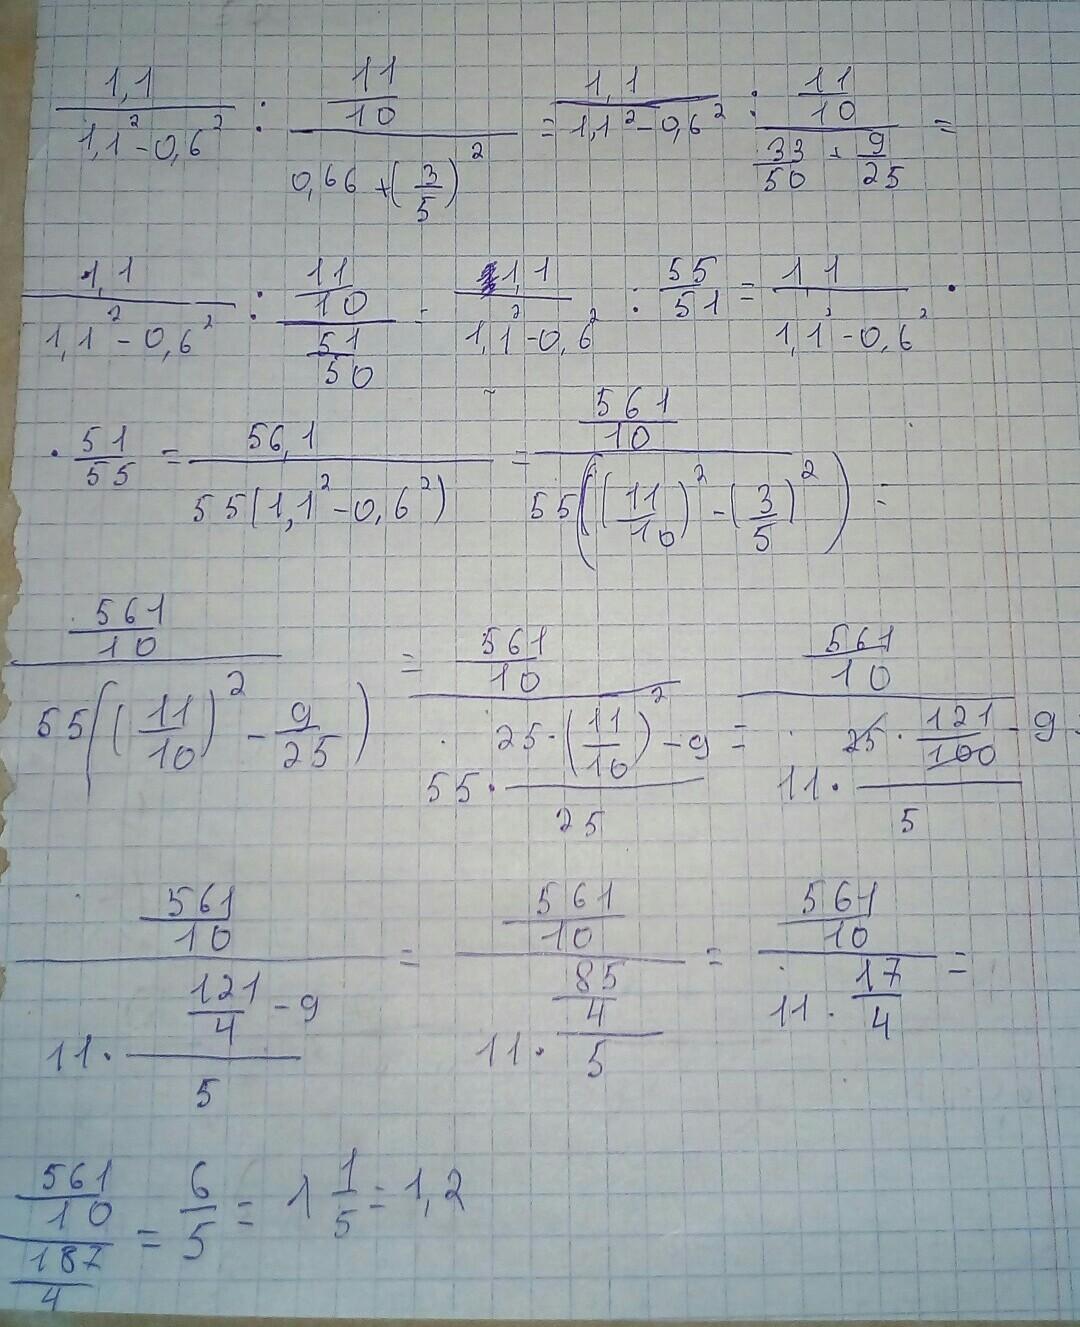 1,1/(1,1²-0,6²) : (11/10)/(0,66+(3/5)²) = 1,1/(1,1²-0,6²) : (11/10)/(33/50+9/25) =
1,1/(1,1²-0,6²) : (11/10)/(51/50) = 1,1/(1,1²-0,6²) : 55/51 = 1 1/(1,1²-0,6²) ·
· 51/55 = 56,1/(55(1,1²-0,6²)) = (561/10)/(55((11/10)²-(3/5)²)) =
(561/10)/(55((11/10)²-9/25)) = (561/10)/(55·(25·(11/10)²-9)/25) = (561/10)/(11·(25·121/100-9)/5)
(561/10)/(11·(121/4-9)/5) = (561/10)/(11·(85/4)/5) = (561/10)/(11·17/4) =
(561/10)/(187/4) = 6/5 = 1 1/5 = 1,2